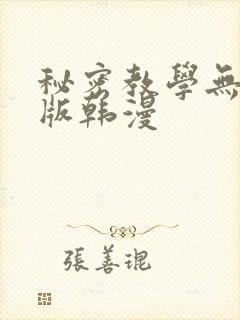 秘密教學無
版韩漫
張善琨